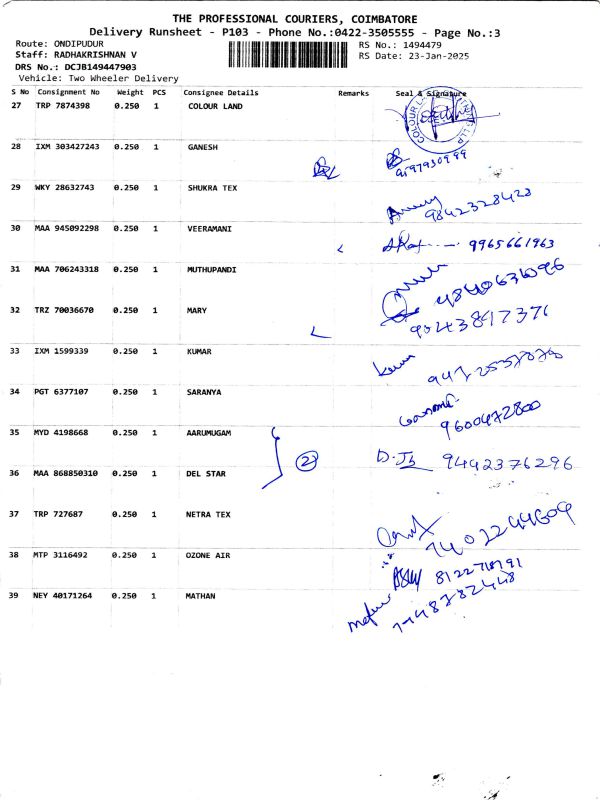 THE PROFESSIONAL COURIERS, COIMBATORE
Delivery Runsheet - P103 - Phone No.:0422-3505555 - Page No.:3
Route: ONDIPUDUR RS No.: 1494479
Staff: RADHAKRISHNAN V RS Date: 23-Jan-2025
DRS No.: DCJB149447903
Vehicle: Two Wheeler Delivery
S No Consignment No Weight PCS Consignee Details Remarks Seal & Signature
27 TRP 7874398 0.250 1 COLOUR LAND
28 IXM 303427243 0.250 1 GANESH
29 WKY 28632743 0.250 1 SHUKRA TEX
9842328423
30 MAA 945092298 0.250 1 VEERAMANI
9965661963
31 MAA 706243318 0.250 1 MUTHUPANDI
32 TRZ 70036670 0.250 1 MARY
33 IXM 1599339 0.250 1 KUMAR
34 PGT 6377107 0.250 1 SARANYA
9600472800
35 MYD 4198668 0.250 1 AARUMUGAM
2 9442376296
36 MAA 868850310 0.250 1 DEL STAR
37 TRP 727687 0.250 1 NETRA TEX
7402244609
38 MTP 3116492 0.250 1 OZONE AIR
39 NEY 40171264 0.250 1 MATHAN